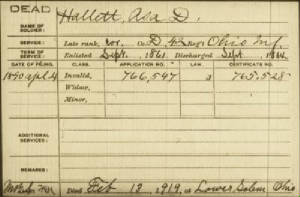 DEAD
NAME OF SOLDIER: Hallett, Asa D.
SERVICE: Late rank, Co. D, 42 Reg't Ohio Inf.
TERM OF SERVICE: Enlisted Sept. 1861 Discharged Sept. 1864
DATE OF FILING. CLASS. APPLICATION NO. LAW. CERTIFICATE NO.
1890 Invalid, 766,547 765,528
Widow,
Minor,
ADDITIONAL SERVICES:
REMARKS:
Died Feb 12, 1919, at Lower Salem Ohio